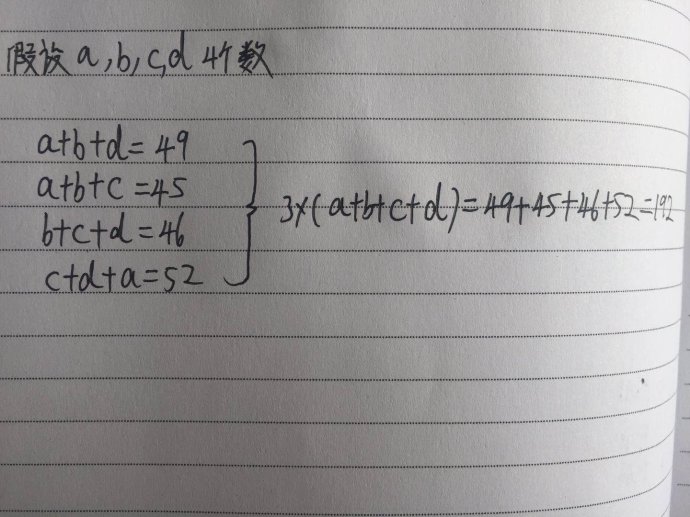 假设a,b,c,d 4个数
a+b+d=49
a+b+c=45
b+c+d=46
c+d+a=52
3×(a+b+c+d)=49+45+46+52=192